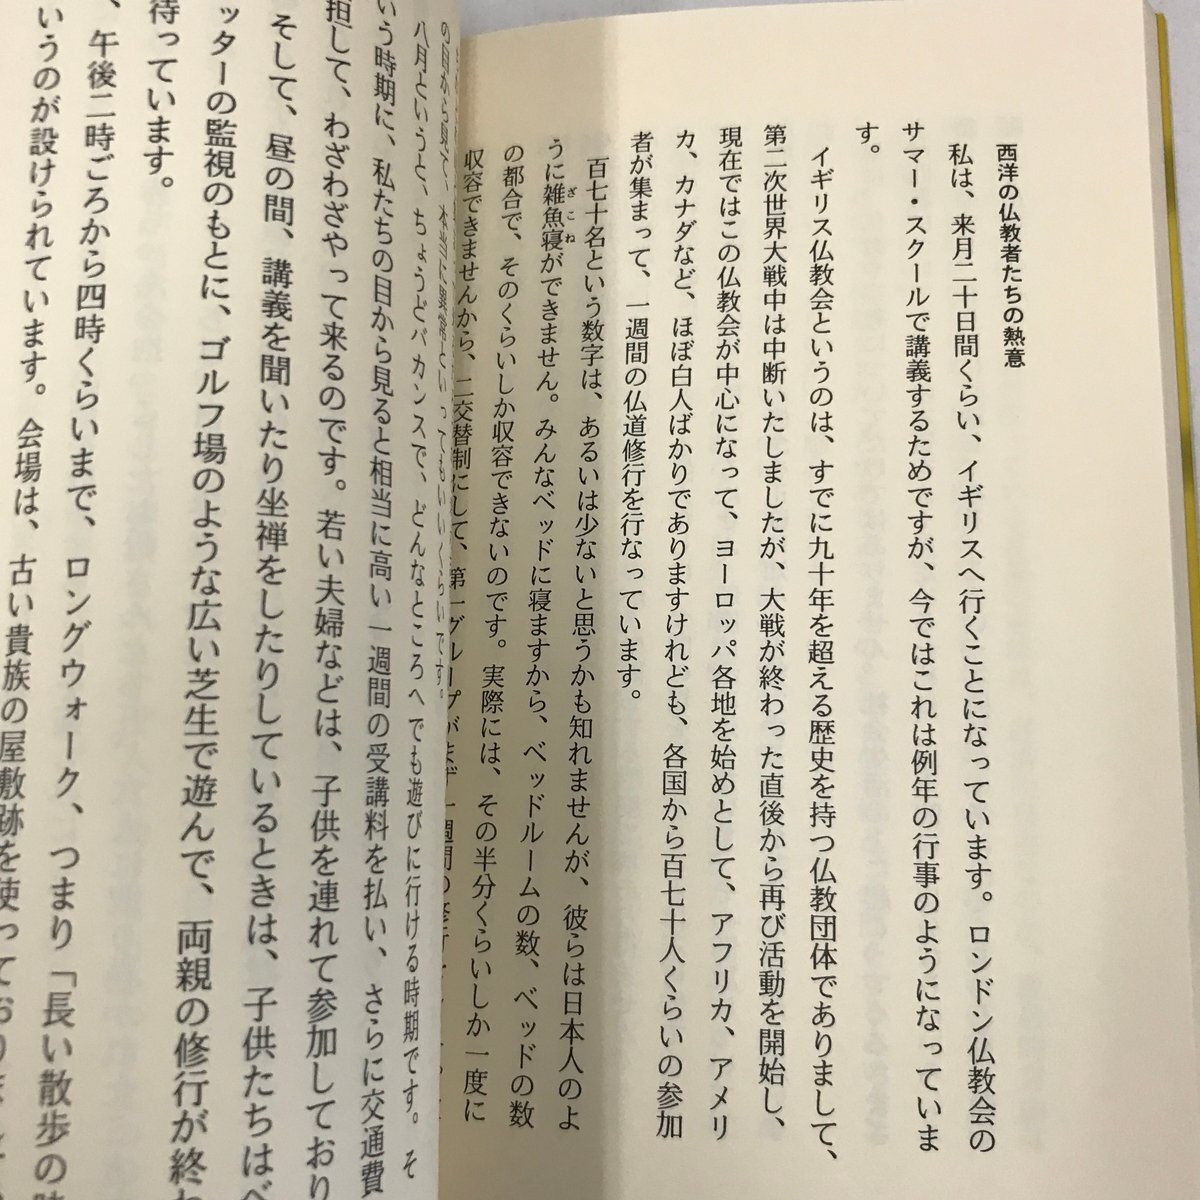 西洋の仏教者たちの熱意
私は、来月二十日間くらい、イギリスへ行くことになっています。ロンドン仏教会の
サマー・スクールで講義するためですが、今ではこれは例年の行事のようになっていま
す。
イギリス仏教会というのは、すでに九十年を超える歴史を持つ仏教団体でありまして、
第二次世界大戦中は中断いたしましたが、大戦が終わった直後から再び活動を開始し、
現在ではこの仏教会が中心になって、ヨーロッパ各地を始めとして、アフリカ、アメリ
カ、カナダなど、ほぼ白人ばかりでありますけれども、各国から百七十人くらいの参加
者が集まって、一週間の仏道修行を行なっています。
百七十名という数字は、あるいは少ないと思うかも知れませんが、彼らは日本人のよ
うに雑魚寝ができません。みんなベッドに寝ますから、ベッドルームの数、ベッドの数
ざこね
の都合で、そのくらいしか収容できないのです。実際には、その半分くらいしか一度に
収容できませんから、二交替制にして、第一グループがまず一週間の
の目から見て、本当に異常といってもいいくらいです。
八月というと、ちょうどバカンスで、どんなところへでも遊びに行ける時期です。そ
いう時期に、私たちの目から見ると相当に高い一週間の受講料を払い、さらに交通費
担して、わざわざやって来るのです。若い夫婦などは、子供を連れて参加しており
そして、昼の間、講義を聞いたり坐禅をしたりしているときは、子供たちはベ
ッターの監視のもとに、ゴルフ場のような広い芝生で遊んで、両親の修行が終わ
待っています。
、午後二時ごろから四時くらいまで、ロングウォーク、つまり「長い散歩の時
いうのが設けられています。会場は、古い貴族の屋敷跡を使っており